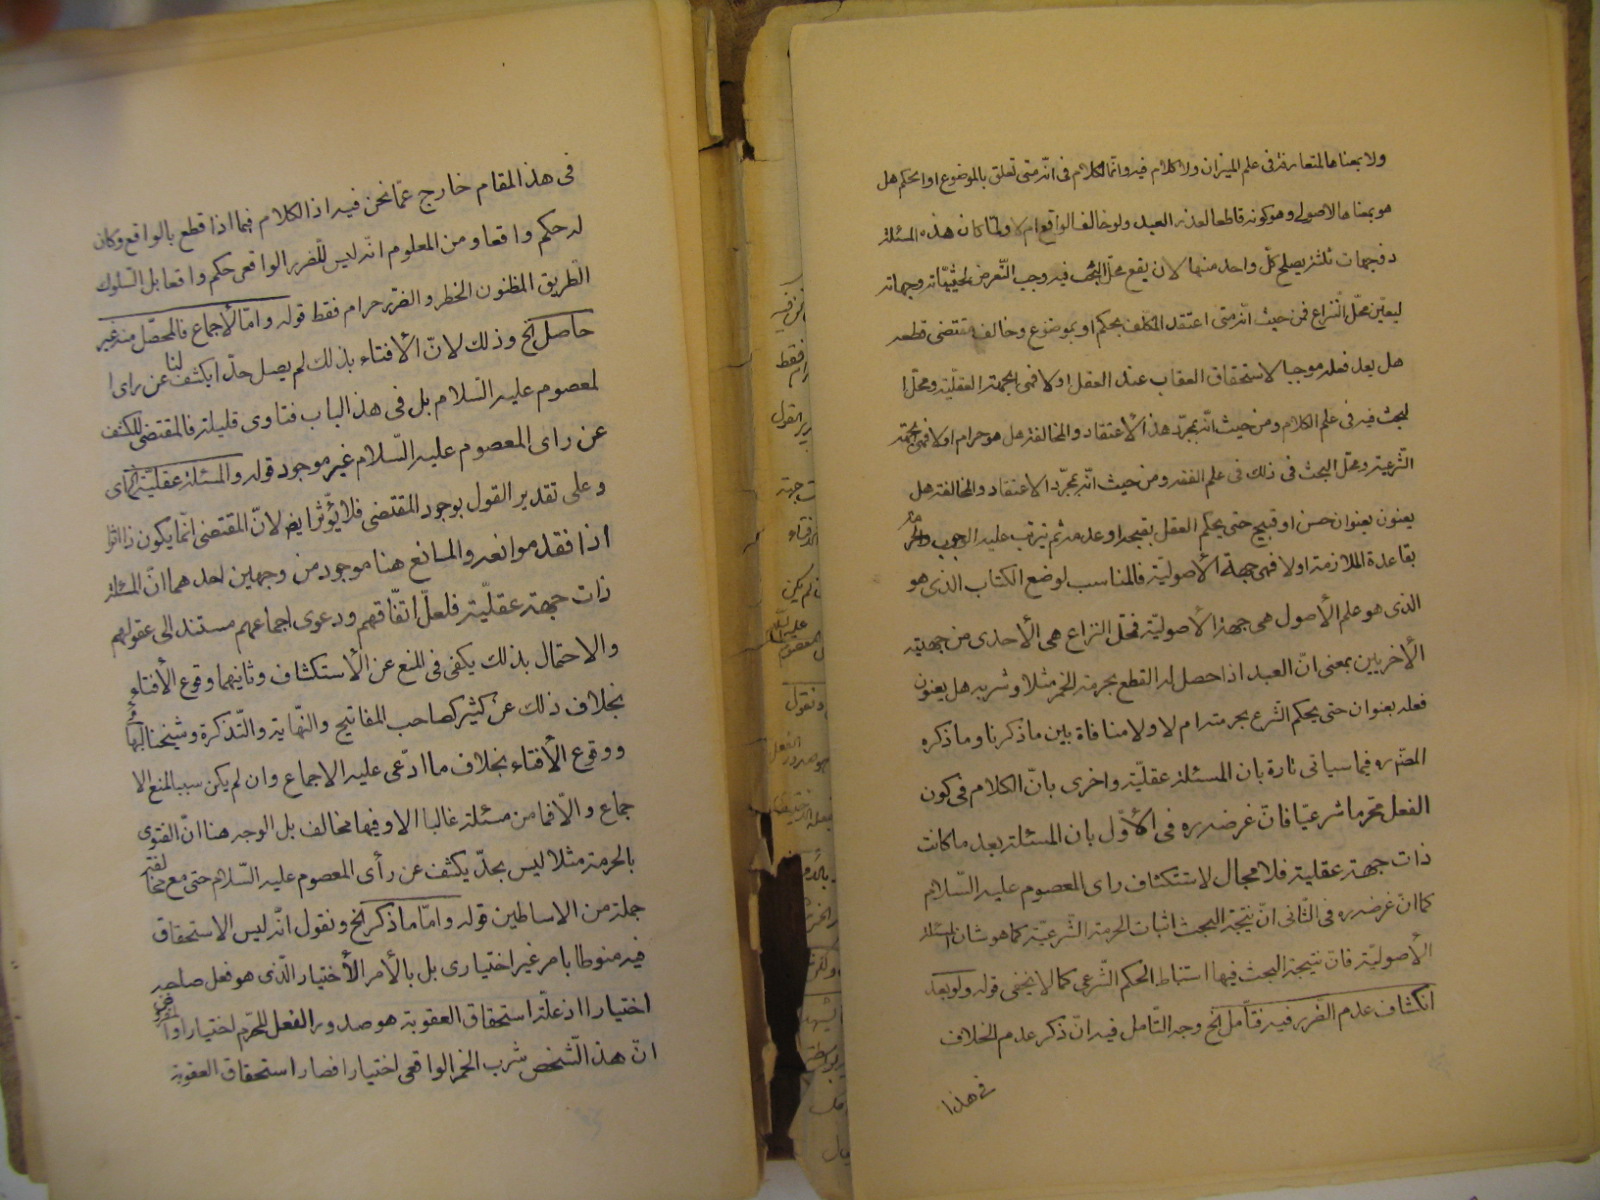 ولا بمعناها المتعارفة فى علم الميزان ولا كلام فيه وانّما الكلام فى انّه متى تعلق بالموضوع او الحكم هل
هو بمعناها الاصولى وهو كونه قاطعا لعذر العبد ولو خالف الواقع ام لا ولمّا كان هذه المسئلة
ذو جهات ثلثة يصلح كلّ واحد منها لان يقع محلّ البحث فيه وجب التّعرض لحيثيّاته وجهاته
ليعيّن محلّ النّزاع فمن حيث انّه متى اعتقد المكلف بحكم او بموضوع وخالف مقتضى قطعه
هل يعدّ فعله موجبا لاستحقاق العقاب عند العقل اولا فهى الجهة العقليّة ومحلّ ا
لبحث فيه فى علم الكلام ومن حيث انّه بمجرّد هذا الأعتقاد والمخالفة هل هو حرام اولا فهى جهة
الشّرعيّة ومحلّ البحث فى ذلك فى علم الفقه ومن حيث انّه بمجرّد الاعتقاد والمخالفة هل
يعنون بعنوان حسن او قبيح حتى يحكم العقل بقبحه او عدمه ثم يترتب عليه الوجوب والحرمة
بقاعدة الملازمة اولا فهى جهة الأصوليّة فالمناسب لوضع الكتاب الذى هو
الذى هو علم الأصول هى جهة الأصوليّة فمحلّ النزاع هى الأحدى من جهتيه
الأخريين بمعنى انّ العبد اذا حصل له القطع بحرمة الخمر مثلا وشربه هل يعنون
فعله بعنوان حتى يحكم الشّرع بحرمته ام لا ولا منافاة بين ما ذكرنا وما ذكره
المصّ ره فيما سياتى تارة بان المسئلة عقليّة واخرى بانّ الكلام فى كون
الفعل محرّما شرعيّا فانّ غرضه ره فى الأوّل بان المسئلة بعد ما كانت
ذات جهة عقلية فلا مجال لاستكشاف راى المعصوم عليه السّلام
كما انّ غرضه ره فى الثّانى انّ نتيجة البحث اثبات الحرمة الشّرعيّة كما هو شان المسئلة
الأصوليّة فان نتيجة البحث فيها استنباط الحكم الشّرعي كما لا يخفى قوله ولو بعد
انكشاف عدم الضّرر فيه فتأمل الخ وجه التّامل فيه انّ ذكر عدم الخلاف
فى هذا
فى هذا المقام خارج عمّا نحن فيه اذ الكلام فيما اذا قطع بالواقع وكان
له حكم واقعا ومن المعلوم انّه ليس للضّرر الواقعى حكم واقعا بل السّلوك
الطّريق المظنون الخطر والضّرر حرام فقط قوله وامّا الأجماع فالمحصّل منه غير
حاصل الخ وذلك لانّ الأفتاء بذلك لم يصل حدّا يكشف لنا عن راى ا
لمعصوم عليه السّلام بل فى هذا الباب فتاوى قليلة فالمقتضى للكشف
عن راى المعصوم عليه السّلام غير موجود قوله والمسئلة عقليّة الخ اى
وعلى تقدير القول بوجود المقتضى فلا يؤثّر ايضا لانّ المقتضى انّما يكون ذا اثر
اذا فقد موانعه والمانع هنا موجود من وجهين احدهما انّ المسئلة
ذات جهة عقليّة فلعلّ اتّفاقهم ودعوى اجماعهم مستند الى عقولهم
والاحتمال بذلك يكفى فى المنع عن الأستكشاف وثانيهما وقوع الأفتاء
بخلاف ذلك عن كثير كصاحب المفاتيح والنّهاية والتّذكرة وشيخنا البهائى
ووقوع الأفتاء بخلاف ما ادّعى عليه الاجماع وان لم يكن سببا لمنع الا
جماع والّا فما من مسئلة غالبا الا وفيها مخالف بل الوجه هنا انّ الفتوى
بالحرمة مثلا ليس بحدّ يكشف عن رأى المعصوم عليه السّلام حتى مع مخالفة
جملة من الاساطين قوله وامّا ما ذكر الخ ونقول انّه ليس الاستحقاق
فيه منوطا بامر غير اختيارى بل بالأمر الأختيار الّذى هو فعل صاحبه
اختيارا اذ علّة استحقاق العقوبة هو صدور الفعل المحّرم اختيارا والمفروض
انّ هذا الشّخص شرب الخمر الواقعى اختيارا فصار استحقاق العقوبة